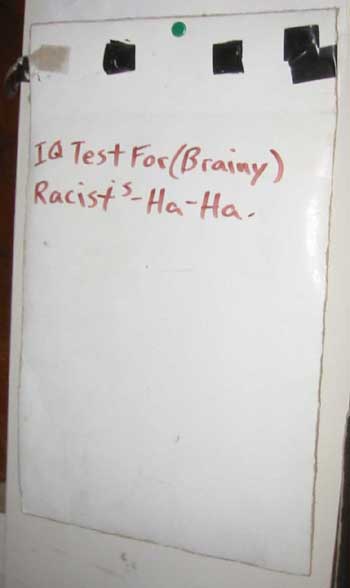 IQ Test For (Brainy)
Racist's-Ha-Ha.